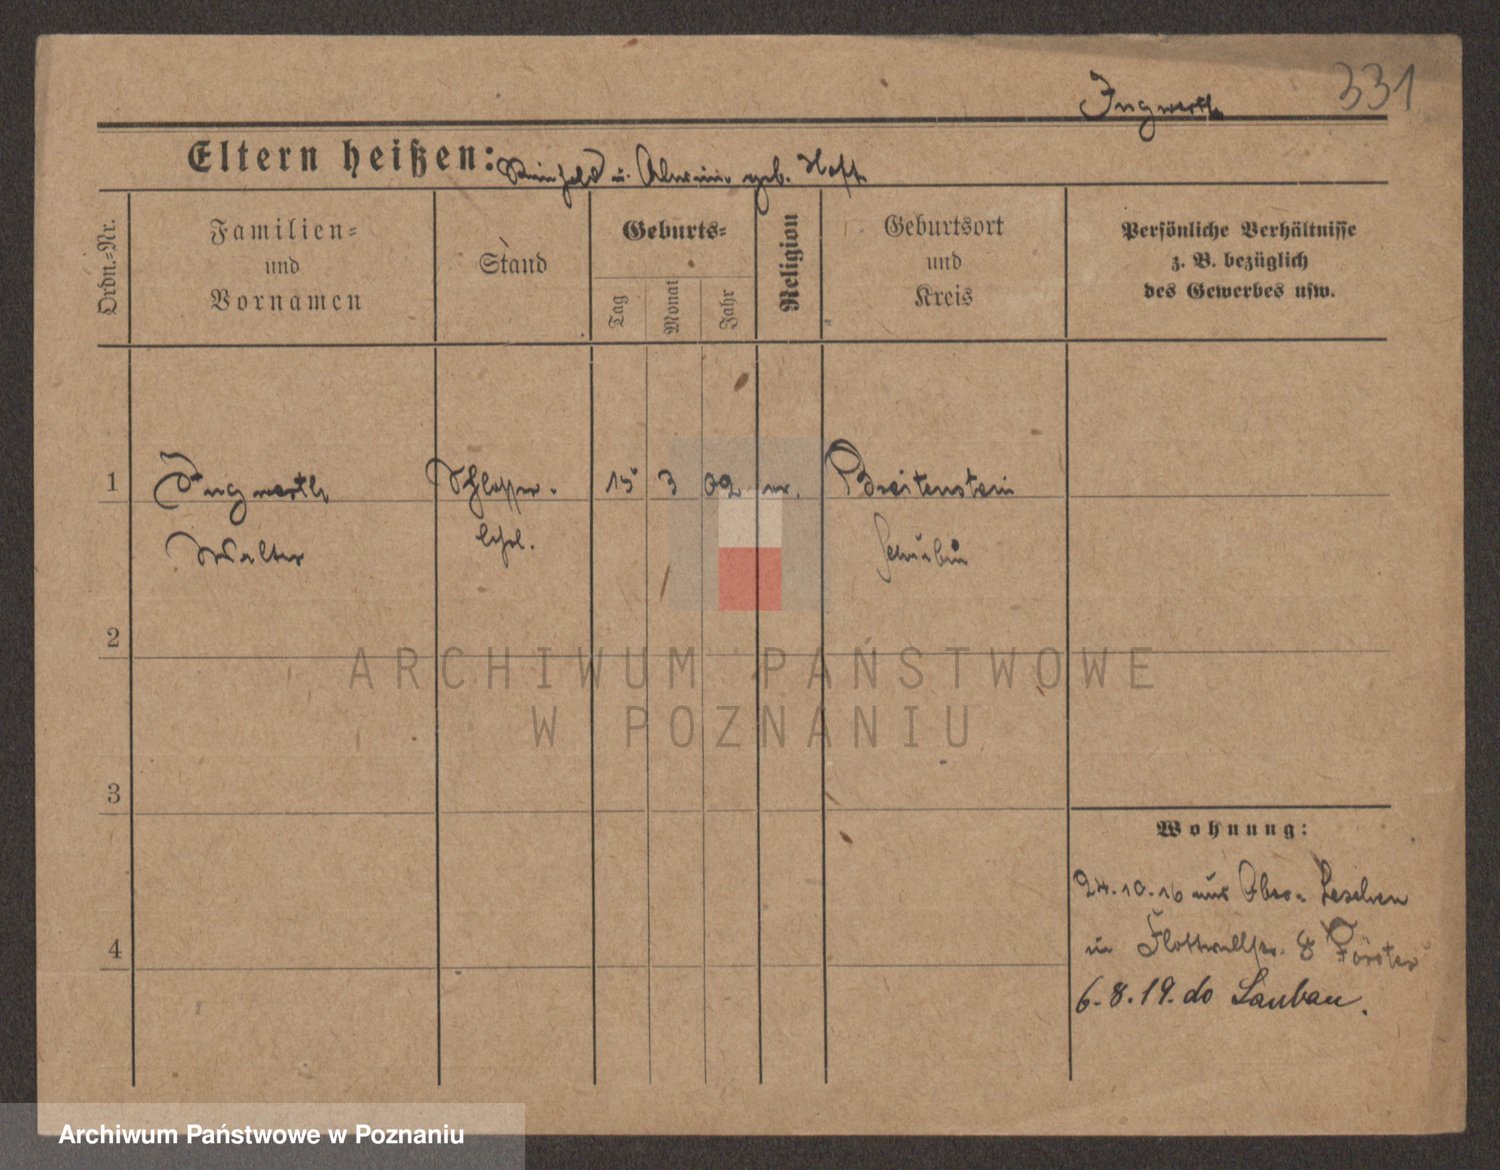 331
Ingwerth
Eltern heißen: Reinhold u. Alwine geb. Hoff
Ordn.-Nr.
Familien- und Vornamen
Stand
Geburts-
Tag
Monat
Jahr
Religion
Geburtsort und Kreis
Persönliche Verhältnisse
z. B. bezüglich
des Gewerbes usw.
1 Ingwerth Schlosser- 15 3 02 ev. Breitenstein
Walter lehrl. Schubin
2
3
4
Wohnung:
24.10.16 aus Leschen
in Flottwellstr. 8 Förster
6.8.19. do Lauban.
ARCHIWUM PAŃSTWOWE
W POZNANIU
Archiwum Państwowe w Poznaniu